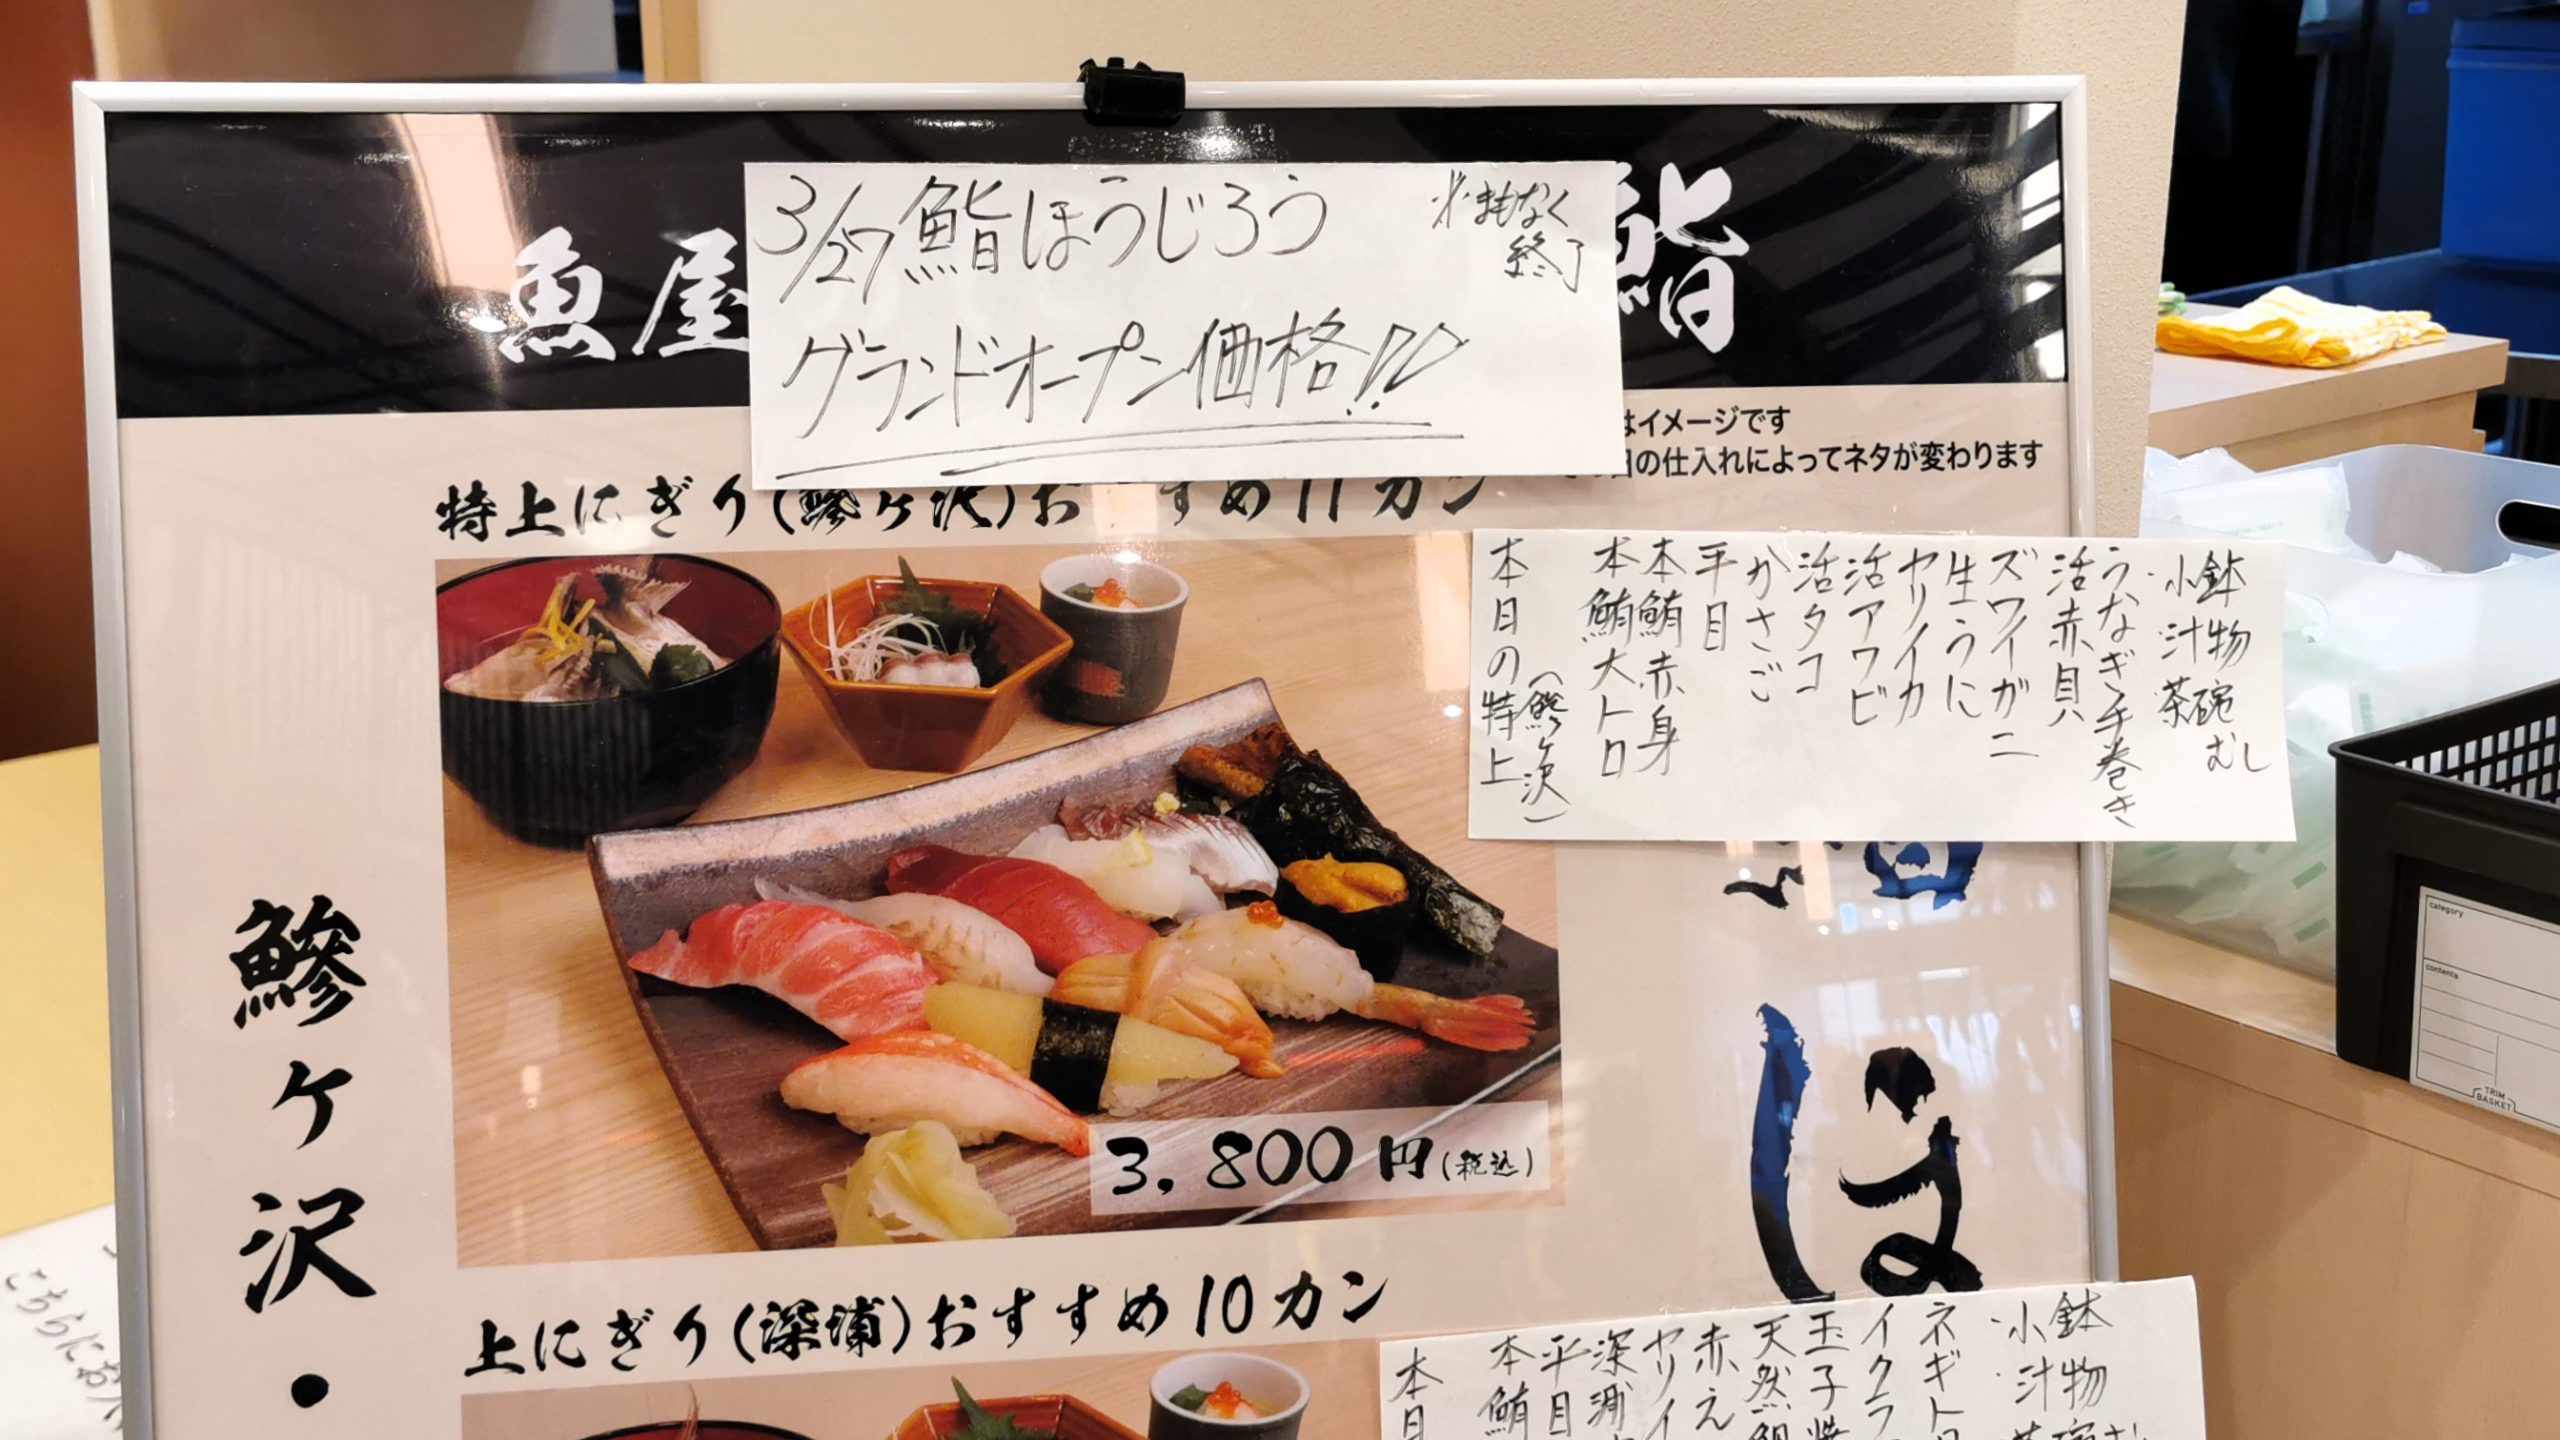 3/27 鮨ほうじろう
※まもなく
終了
グランドオープン価格!!
魚屋
鮨
はイメージです
日の仕入れによってネタが変わります
特上にぎり(鰺ヶ沢)おすすめ11カン
鰺ヶ沢・
小鉢
・汁物
茶碗むし
うなぎ手巻き
活赤貝
ズワイガニ
生うに
ヤリイカ
活アワビ
活タコ
かさご
平目
本鮪赤身
本鮪大トロ
本日の特上
(鰺ヶ沢)
は
3,800円(税込)
上にぎり(深浦)おすすめ10カン
・小鉢
・汁物
ネギト
イクラ
玉子焼
天然鯛
赤え
ヤリイ
深浦
平目
本鮪
本日
こちらにお
category
contents
TRIM
BASKET